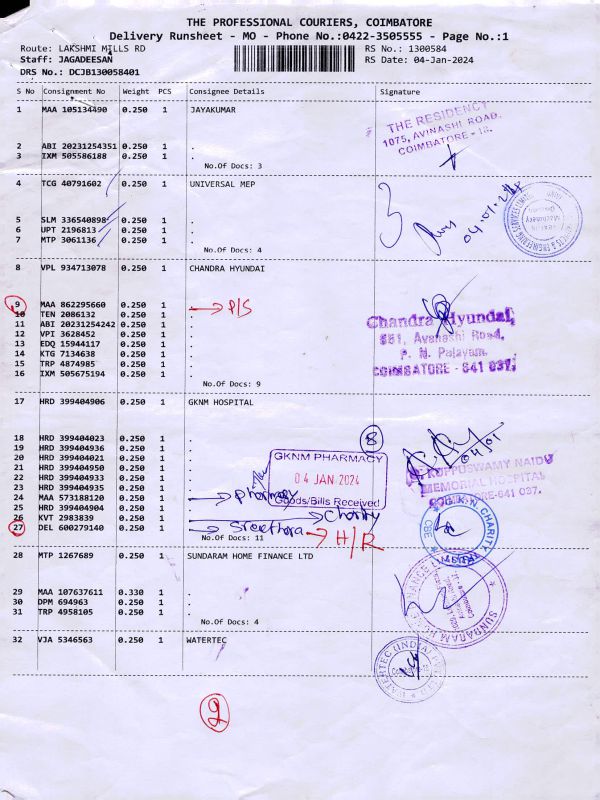 THE PROFESSIONAL COURIERS, COIMBATORE
Delivery Runsheet - MO - Phone No.:0422-3505555 - Page No.:1
Route: LAKSHMI MILLS RD RS No.: 1300584
Staff: JAGADEESAN RS Date: 04-Jan-2024
DRS No.: DCJB130058401
S No Consignment No Weight PCS Consignee Details Signature
1 MAA 105134490 0.250 1 JAYAKUMAR
THE RESIDENCY
1075, AVINASHI ROAD,
COIMBATORE - 18.
2 ABI 20231254351 0.250 1 .
3 IXM 505586188 0.250 1 .
No.Of Docs: 3
4 TCG 40791602 0.250 1 UNIVERSAL MEP
5 SLM 336540898 0.250 1 .
6 UPT 2196813 0.250 1 .
7 MTP 3061136 0.250 1 .
No.Of Docs: 4
3
8 VPL 934713078 0.250 1 CHANDRA HYUNDAI
9 MAA 862295660 0.250 1 P/S
10 TEN 2086132 0.250 1 .
11 ABI 20231254242 0.250 1 .
12 VPI 3628452 0.250 1 .
13 EDQ 15944117 0.250 1 .
14 KTG 7134638 0.250 1 .
15 TRP 4874985 0.250 1 .
16 IXM 505675194 0.250 1 .
No.Of Docs: 9
Chandra Hyundai,
551, Avanashi Road,
P. N. Palayam,
COIMBATORE - 641 037.
17 HRD 399404906 0.250 1 GKNM HOSPITAL
8
18 HRD 399404023 0.250 1 .
19 HRD 399404936 0.250 1 .
20 HRD 399404021 0.250 1 .
21 HRD 399404950 0.250 1 .
22 HRD 399404933 0.250 1 .
23 HRD 399404935 0.250 1 .
24 MAA 573188120 0.250 1 . Pharmacy
25 HRD 399404904 0.250 1 .
26 KVT 2983839 0.250 1 . Charity
27 DEL 600279140 0.250 1 . H/R
No.Of Docs: 11
GKNM PHARMACY
04 JAN 2024
Goods/Bills Received
04/01
KUPPUSWAMY NAIDU
MEMORIAL HOSPITAL
COIMBATORE-641 037.
28 MTP 1267689 0.250 1 SUNDARAM HOME FINANCE LTD
29 MAA 107637611 0.330 1 .
30 DPM 694963 0.250 1 .
31 TRP 4958105 0.250 1 .
No.Of Docs: 4
32 VJA 5346563 0.250 1 WATERTEC
2